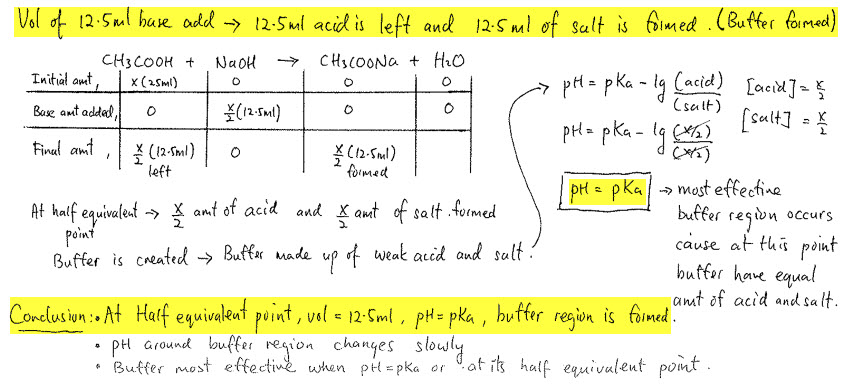 Vol of 12.5ml base add → 12.5ml acid is left and 12.5ml of salt is formed. (Buffer formed)
CH3COOH + NaOH → CH3COONa + H2O
Initial amt, x (25ml) 0 0 0
Base amt added, 0 x/2 (12.5ml) 0 0
Final amt, x/2 (12.5ml) left 0 x/2 (12.5ml) formed
At half equivalent → x/2 amt of acid and x/2 amt of salt formed
point
Buffer is created → Buffer made up of weak acid and salt.
pH = pKa - lg (acid)/(salt) [acid] = x/2
pH = pKa - lg (x/2)/(x/2) [salt] = x/2
pH = pKa → most effective
buffer region occurs
cause at this point
buffer have equal
amt of acid and salt.
Conclusion: • At Half equivalent point, vol = 12.5ml, pH=pKa, buffer region is formed.
• pH around buffer region changes slowly
• Buffer most effective when pH=pKa or at its half equivalent point.